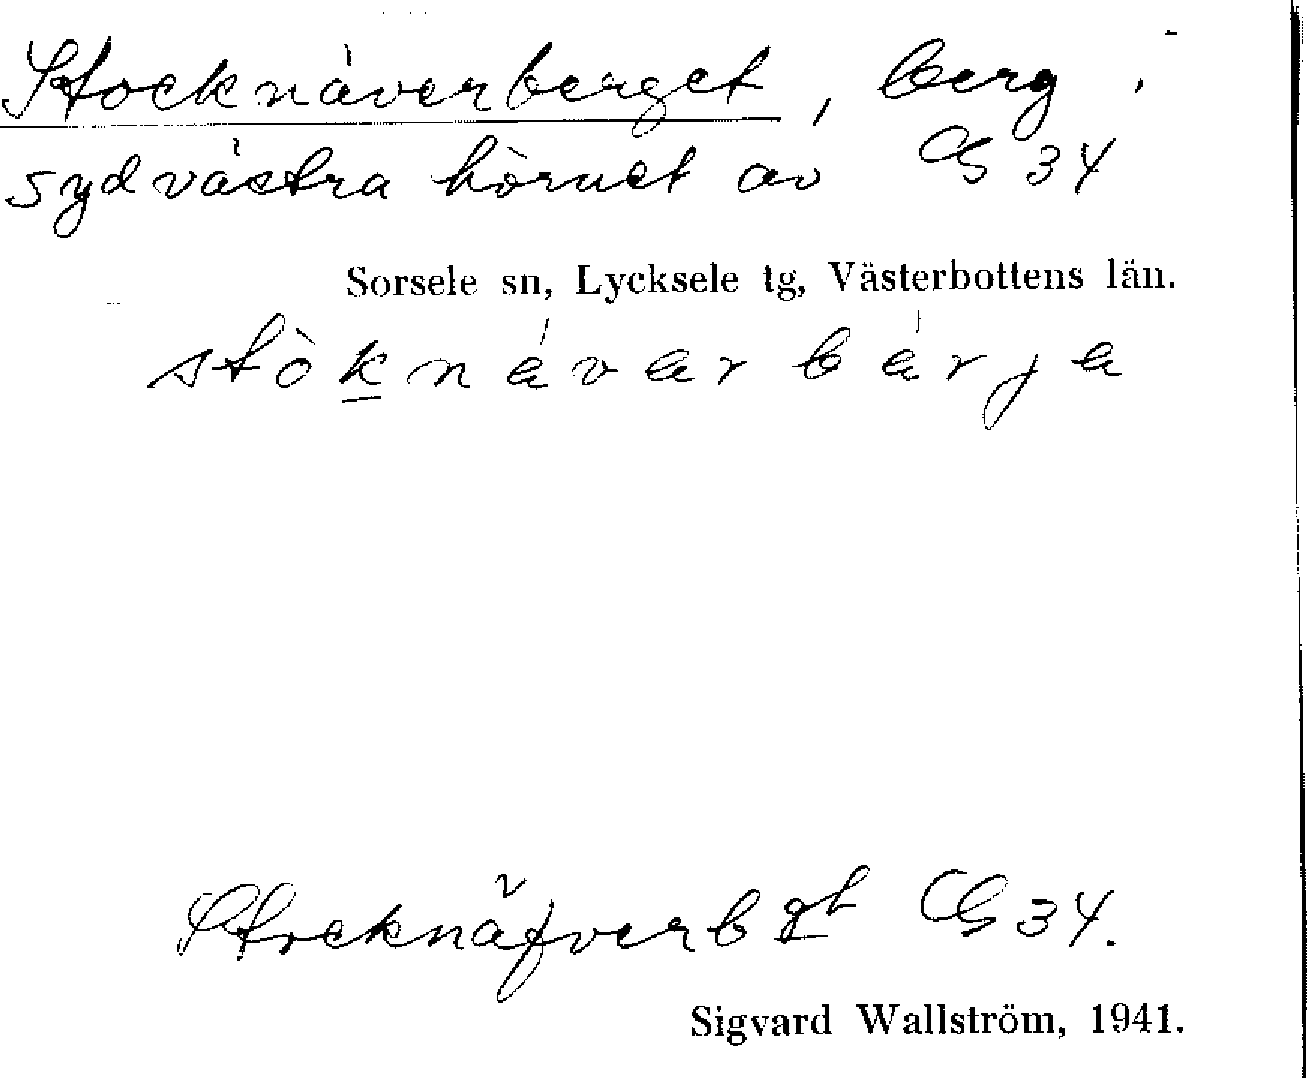 Stocknäverberget, berg i
sydvästra hörnet av G 34
Sorsele sn, Lycksele tg, Västerbottens län.
Stocknäfverbgt G 34.
Sigvard Wallström, 1941.